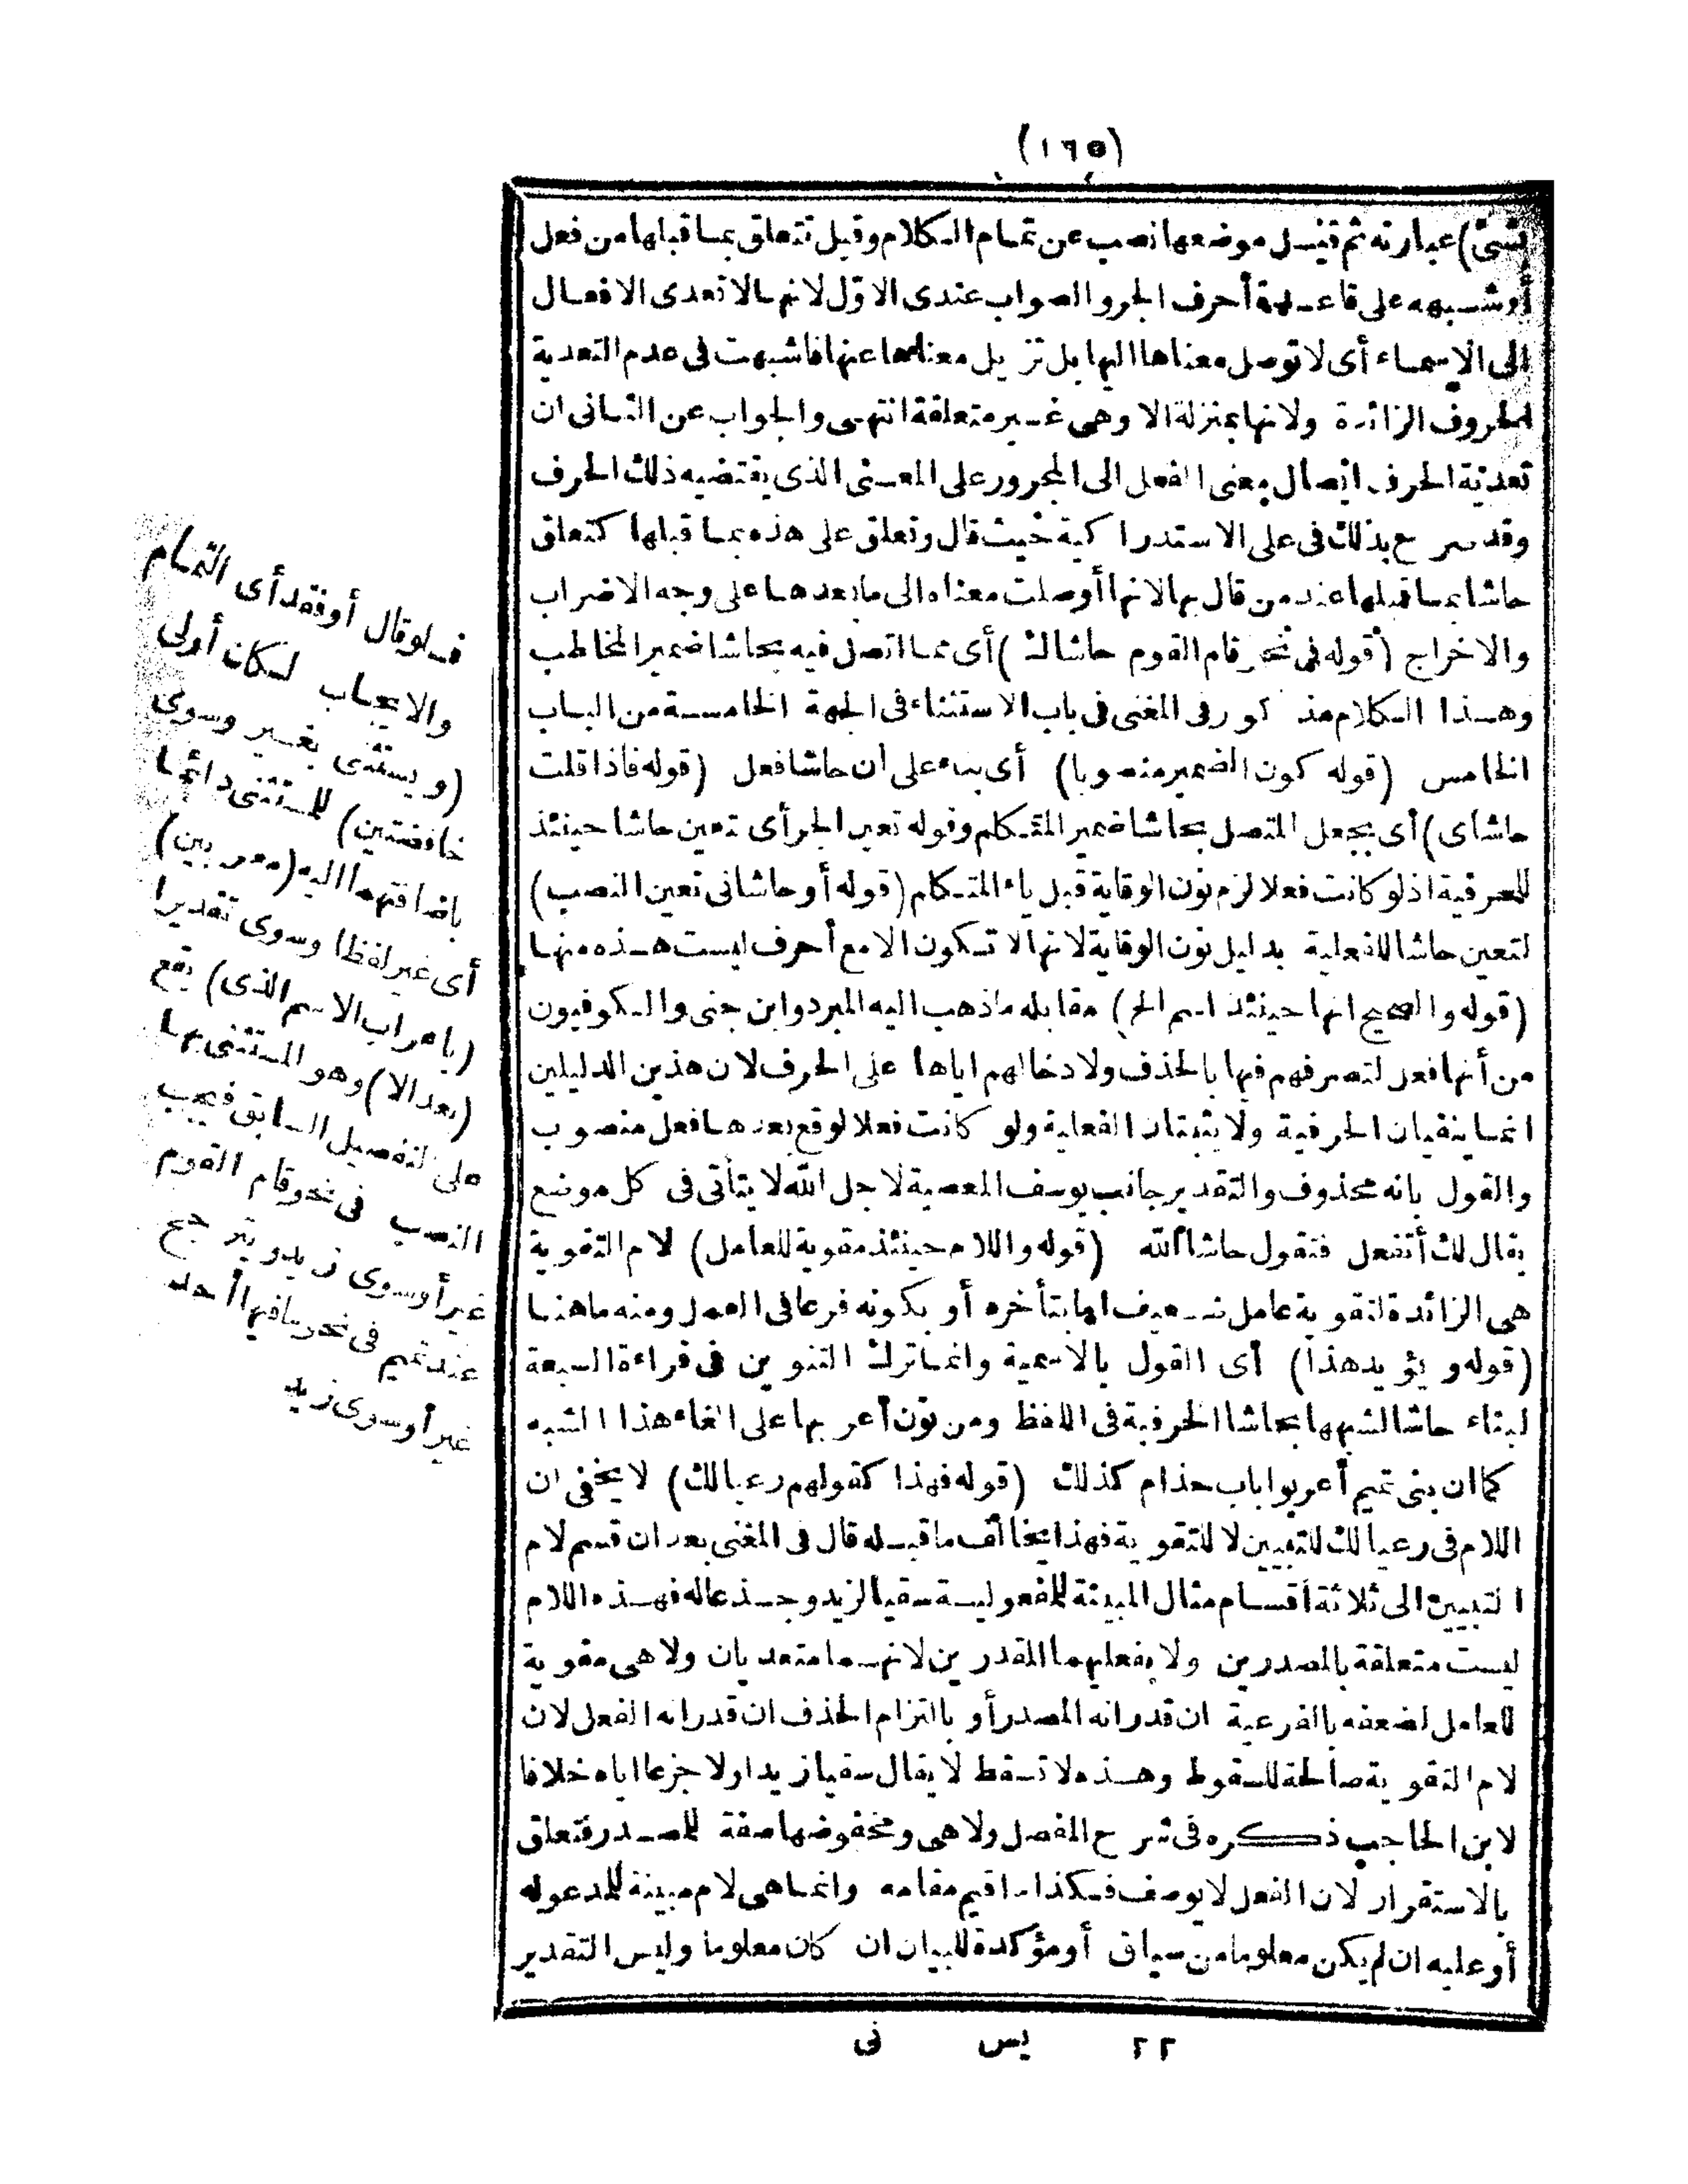 (١٦٥)
شئ) عبارته ثم قيل موضعها نصب عن تمام الكلام وقيل تتعلق بما قبلها من فعل
أو شبهه على قاعدة أحرف الجر والصواب عندى الاوّل لانها لا تعدى الافعال
الى الاسماء أى لا توصل معناها اليها بل تزيل معناها عنها فاشبهت فى عدم التعدية
الحروف الزائدة ولانها بمنزلة الا وهى غير متعلقة انتهى والجواب عن الثانى ان
تعدية الحرف ايصال معنى الفعل الى المجرور على المعنى الذى يقتضيه ذلك الحرف
وقد صرح بذلك فى على الاستدراكية حيث قال وتعلق على هذه بما قبلها كتعلق
حاشا بما قبلها عند من قال بها لانها أوصلت معناه الى ما بعدها على وجه الاضراب
والاخراج (قوله فى نحو قام القوم حاشاك) أى مما اتصل فيه بحاشا ضمير المخاطب
وهذا الكلام مذكور فى المغنى فى باب الاستثناء فى الجهة الخامسة من الباب
الخامس (قوله كون الضمير منصوبا) أى بناء على ان حاشا فعل (قوله فاذا قلت
حاشاى) أى بجعل المتصل بحاشا ضمير المتكلم وقوله تعين الجر أى تعين حاشا حينئذ
للحرفية اذ لو كانت فعلا لزم نون الوقاية قبل ياء المتكلم (قوله أو حاشانى تعين النصب)
لتعين حاشا للفعلية بدليل نون الوقاية لانها لا تكون الا مع أحرف ليست هذه منها
(قوله والصحيح انها حينئذ اسم الخ) مقابله ما ذهب اليه المبرد وابن جنى والكوفيون
من أنها فعل لتصرفهم فيها بالحذف ولادخالهم اياها على الحرف لان هذين الدليلين
انما ينفيان الحرفية ولا يثبتان الفعلية ولو كانت فعلا لوقع بعدها فعل منصوب
والقول بانه محذوف والتقدير جانب يوسف المعصية لاجل الله لا يتأتى فى كل موضع
يقال لك أتفعل فتقول حاشا لله (قوله واللام حينئذ مقوية للعامل) لام التقوية
هى الزائدة لتقوية عامل ضعيف اما بتأخره أو بكونه فرعا فى العمل ومنه ما هنا
(قوله ويؤيد هذا) أى القول بالاسمية وانما ترك التنوين فى قراءة السبعة
لبناء حاشا لشبهها بحاشا الحرفية فى اللفظ ومن نوّن أعربها على الغاء هذا الشبه
كما ان بنى تميم أعربوا باب حذام كذلك (قوله فهذا كقولهم رعيا لك) لا يخفى ان
اللام فى رعيا لك للتبيين لا للتقوية فهذا يخالف ما قبله قال فى المغنى بعد ان قسم لام
التبيين الى ثلاثة أقسام مثال المبينة للمفعولية سقيا لزيد وجدعا له فهذه اللام
ليست متعلقة بالمصدرين ولا بفعليهما المقدرين لانهما متعديان ولا هى مقوية
للعامل لضعفه بالفرعية ان قدر انه المصدر أو بالتزام الحذف ان قدر انه الفعل لان
لام التقوية صالحة للسقوط وهذه لا تسقط لا يقال سقيا زيدا ولا جزعا اياه خلافا
لابن الحاجب ذكره فى شرح المفصل ولا هى ومخفوضها صفة للمصدر فتتعلق
بالاستقرار لان الفعل لا يوصف فكذا ما اقيم مقامه وانما هى لام مبينة للمدعو له
أو عليه ان لم يكن معلوما من سياق أو مؤكدة للبيان ان كان معلوما وليس التقدير
٢٢ يس نى
فلو قال أو فقد أى التمام
والايجاب لكان أولى
(ويستثنى بغير وسوى
خافضتين) للمستثنى دائما
باضافتهما اليه (معربين)
أى غير لفظا وسوى تقديرا
(باعراب الاسم الذى) يقع
(بعد الا) وهو المستثنى بها
على التفصيل السابق فيجب
النصب فى نحو قام القوم
غير أو سوى زيد ويترجح
عند تميم فى نحو ما فيها أحد
غير أو سوى زيد